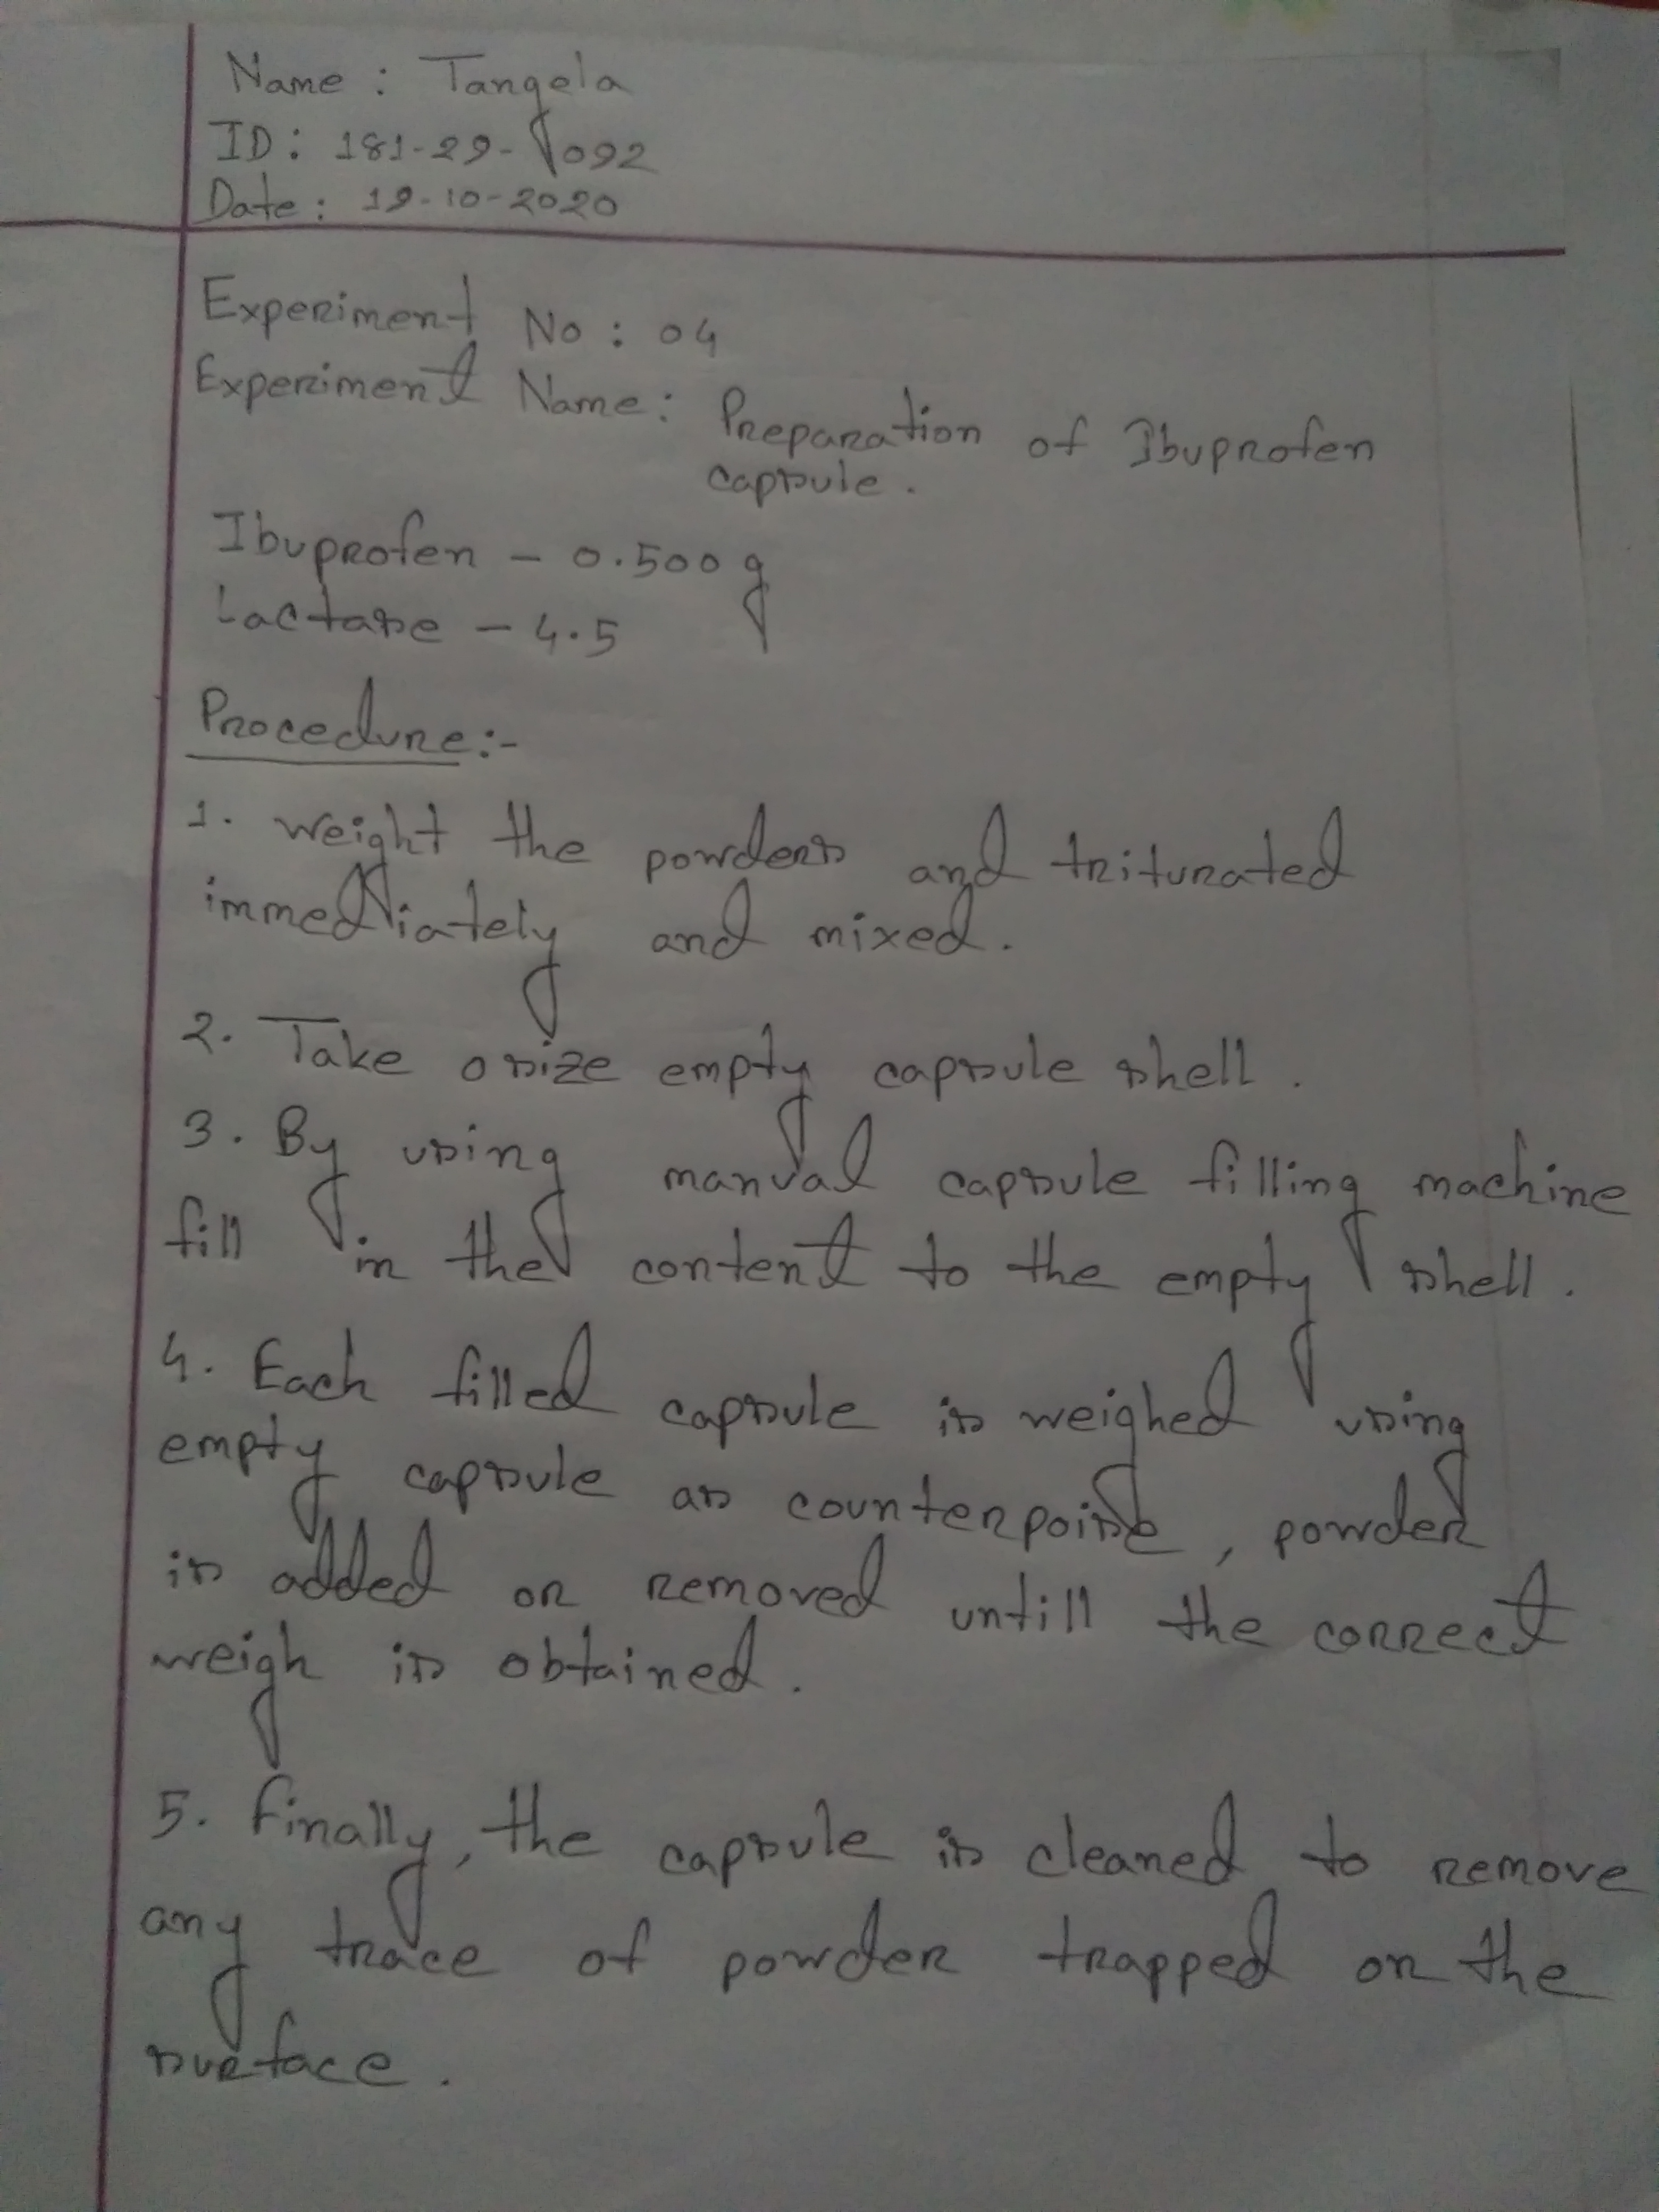 Name : Tangela
ID : 181-29-1092
Date : 19-10-2020
Experiment No : 04
Experiment Name : Preparation of Ibuprofen
capsule.
Ibuprofen - 0.500 g
Lactase - 4.5
Procedure :-
1. Weight the powders and triturated
immediately and mixed.
2. Take 0 size empty capsule shell.
3. By using manual capsule filling machine
fill in the content to the empty shell.
4. Each filled capsule is weighed using
empty capsule as counterpoise, powder
is added or removed untill the correct
weigh is obtained.
5. Finally, the capsule is cleaned to remove
any trace of powder trapped on the
surface.